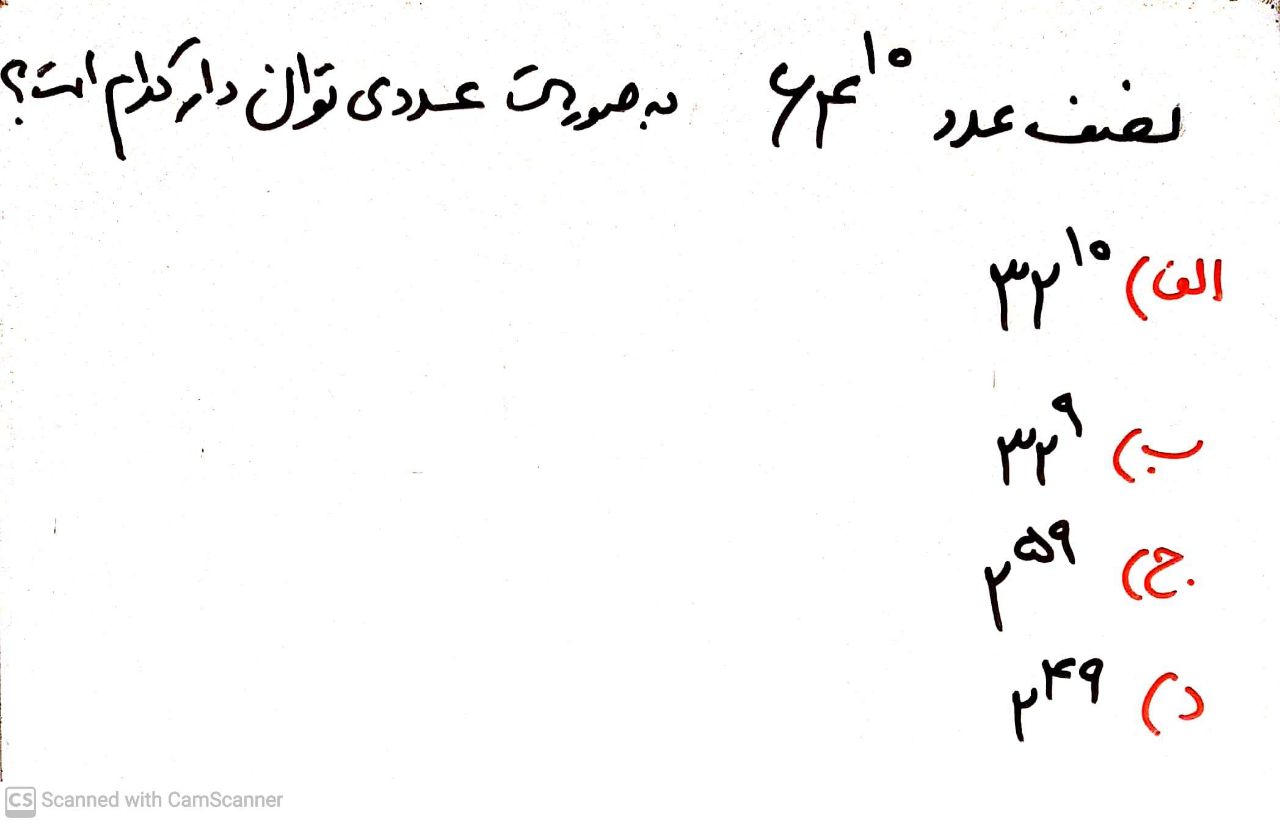 نصف عدد ۶۴^۱۰ به صورت عددی توان دار کدام است؟
الف) ۳۲^۱۰
ب) ۳۲^۹
ج) ۲^۵۹
د) ۲^۴۹
CS Scanned with CamScanner